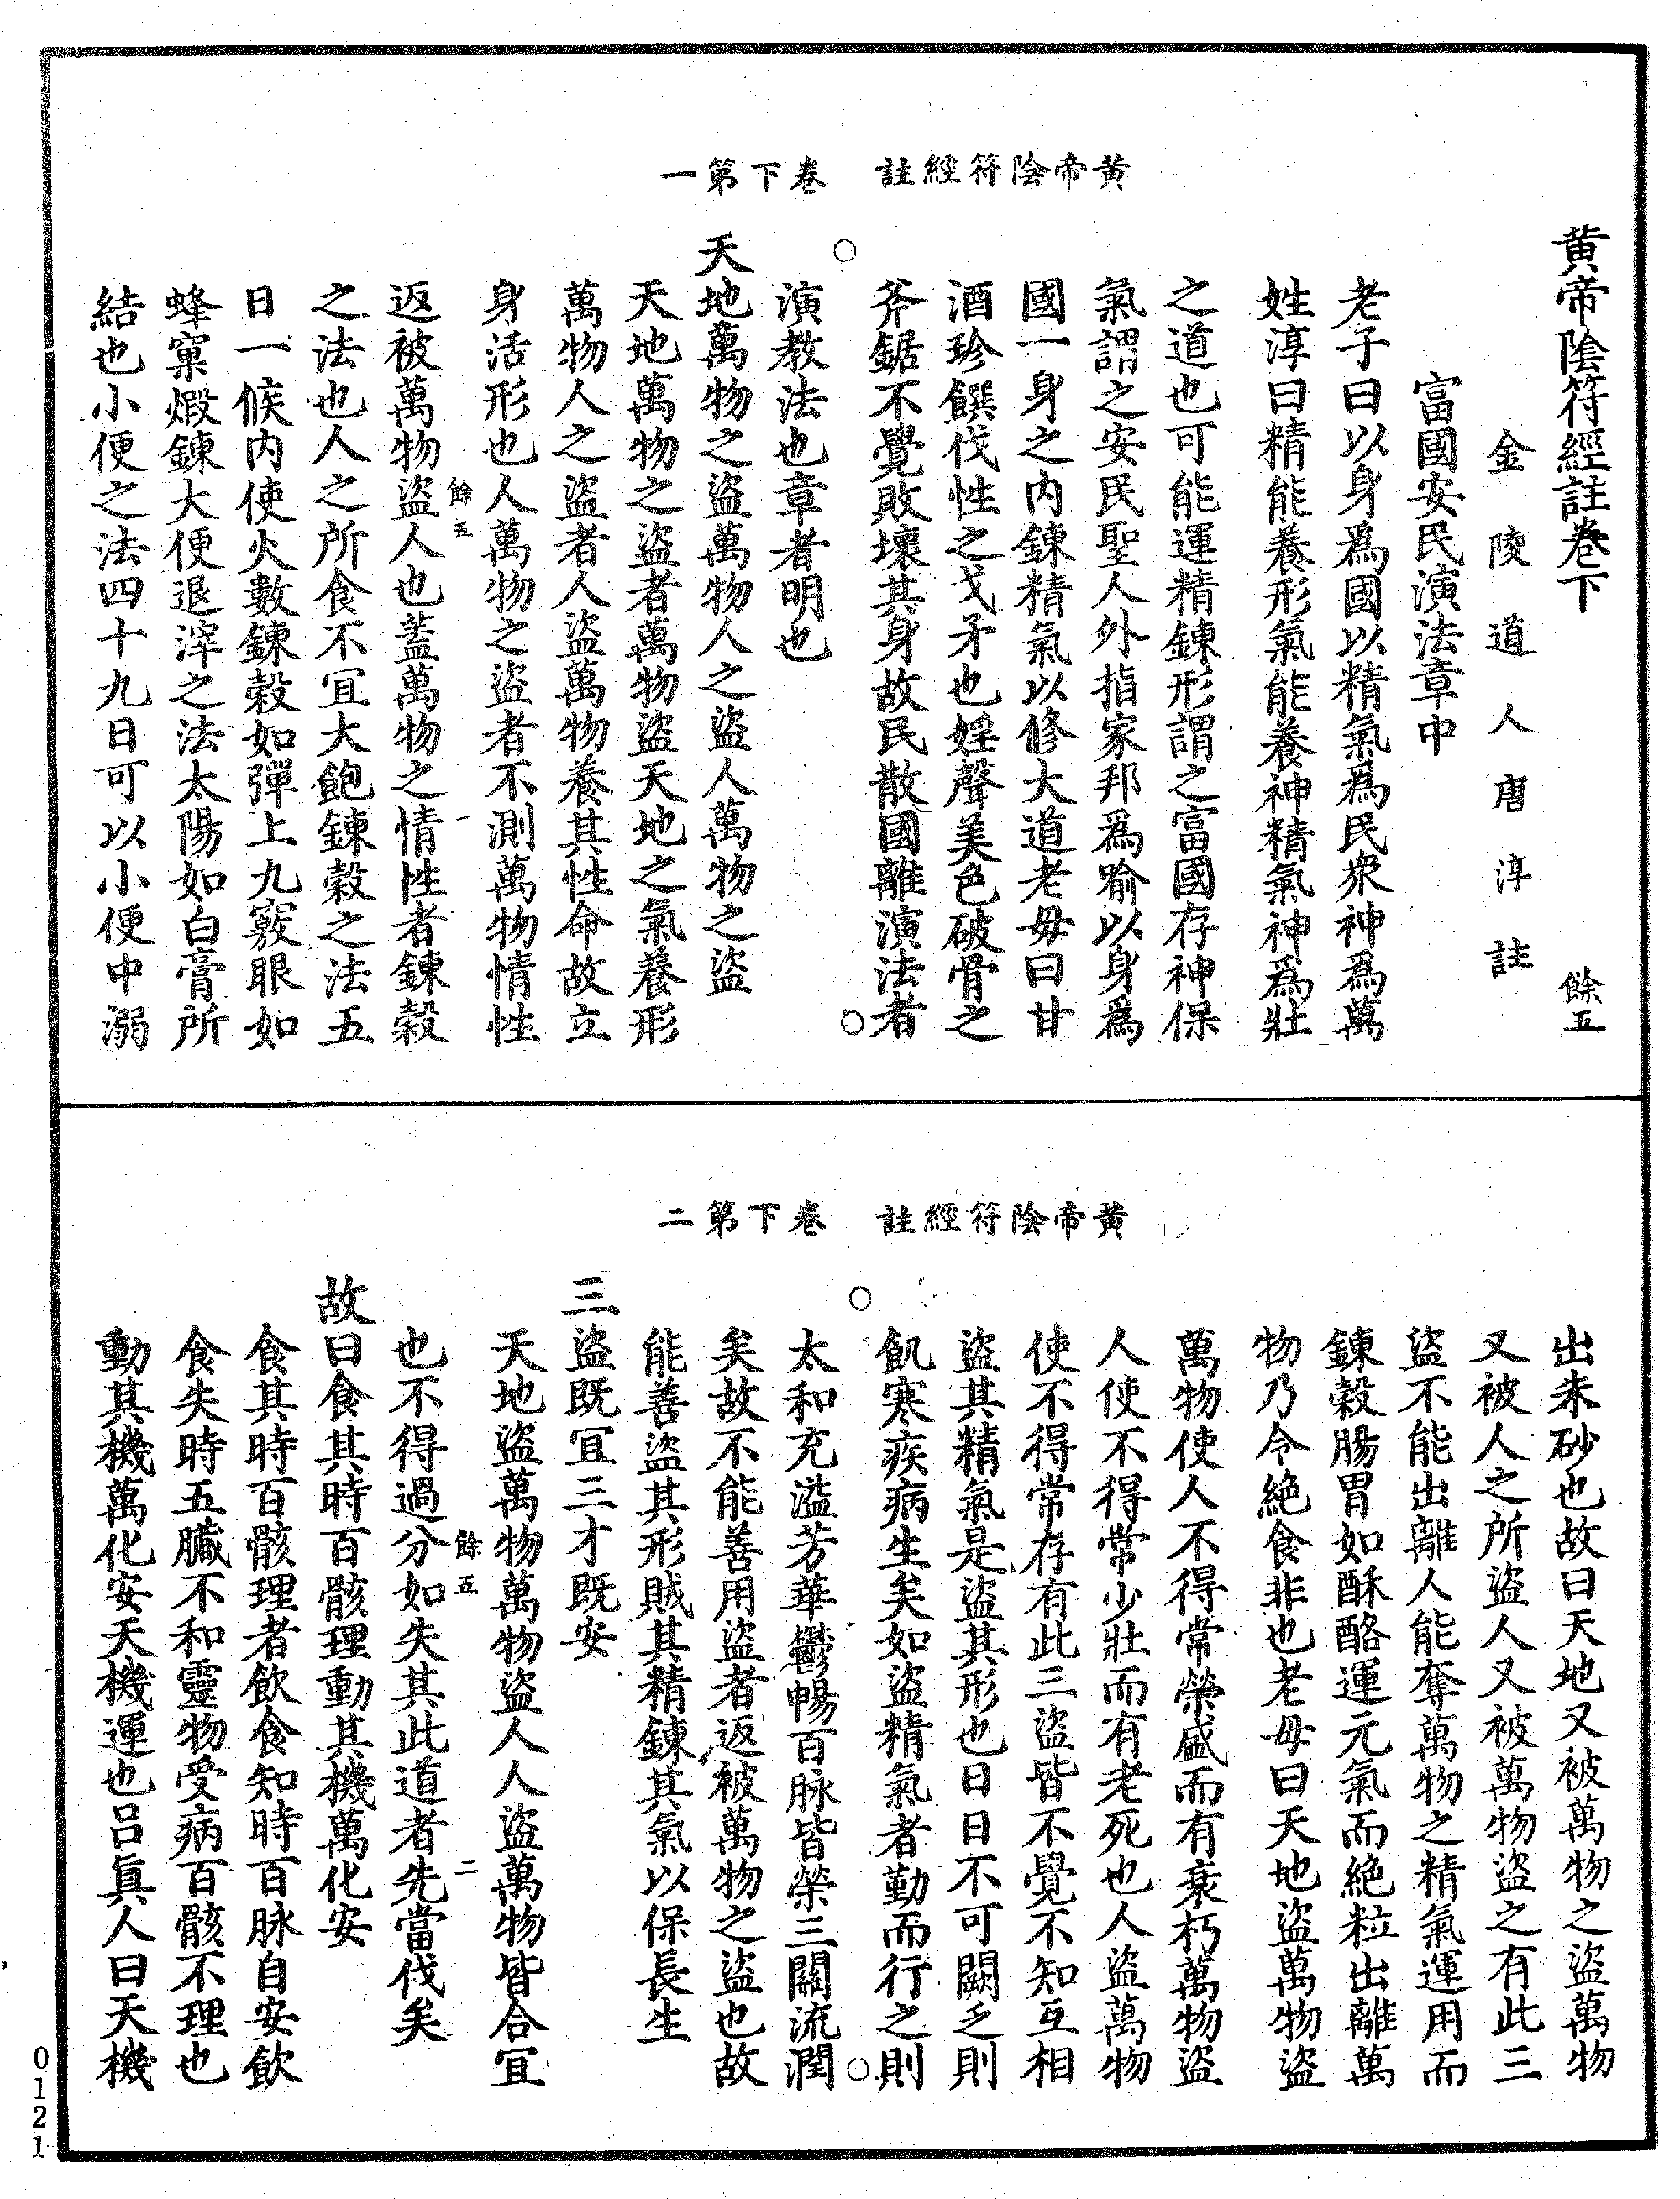 黃帝陰符經註　卷下第一
黃帝陰符經註卷下　餘五
金陵道人唐淳註
富國安民演法章中
老子曰以身爲國以精氣爲民衆神爲萬
姓淳曰精能養形氣能養神精氣神爲壯
之道也可能運精鍊形謂之富國存神保
氣謂之安民聖人外指家邦爲喻以身爲
國一身之內鍊精氣以修大道老母曰甘
酒珍饌伐性之戈矛也婬聲美色破骨之
斧鋸不覺敗壞其身故民散國離演法者
○　○
演教法也章者明也
天地萬物之盜萬物人之盜人萬物之盜
天地萬物之盜者萬物盜天地之氣養形
萬物人之盜者人盜萬物養其性命故立
身活形也人萬物之盜者不測萬物情性
餘五　一
返被萬物盜人也蓋萬物之情性者鍊穀
之法也人之所食不宜大飽鍊穀之法五
日一候內使火數鍊穀如彈上九竅眼如
蜂窠煅鍊大便退滓之法太陽如白膏所
結也小便之法四十九日可以小便中溺
黃帝陰符經註　卷下第二
出朱砂也故曰天地又被萬物之盜萬物
又被人之所盜人又被萬物盜之有此三
盜不能出離人能奪萬物之精氣運用而
鍊穀腸胃如酥酪運元氣而絕粒出離萬
物乃令絕食非也老母曰天地盜萬物盜
萬物使人不得常榮盛而有衰朽萬物盜
人使不得常少壯而有老死也人盜萬物
使不得常存有此三盜皆不覺不知互相
盜其精氣是盜其形也日日不可闕乏則
飢寒疾病生矣如盜精氣者勤而行之則
○　○
太和充溢芳華鬱暢百脉皆榮三關流潤
矣故不能善用盜者返被萬物之盜也故
能善盜其形賊其精鍊其氣以保長生
三盜既宜三才既安
天地盜萬物萬物盜人人盜萬物皆合宜
餘五　二
也不得過分如失其此道者先當伐矣
故曰食其時百骸理動其機萬化安
食其時百骸理者飲食知時百脉自安飲
食失時五臟不和靈物受病百骸不理也
動其機萬化安天機運也呂眞人曰天機
0121